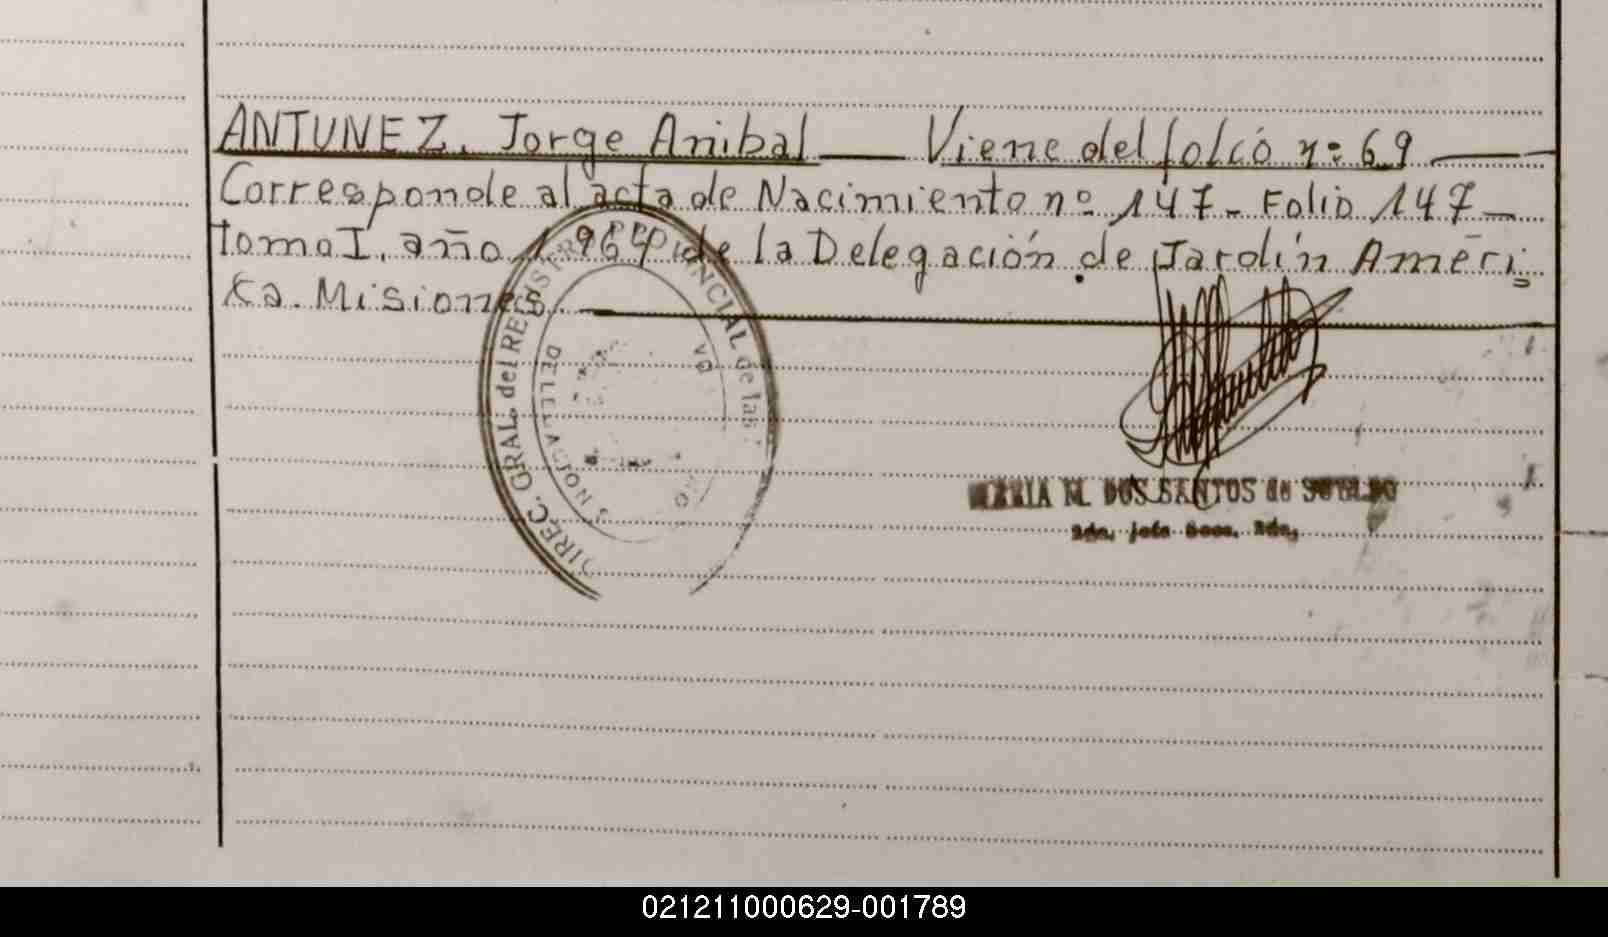 ANTUNEZ, Jorge Anibal — Viene del folio nº 69 —
Corresponde al acta de Nacimiento nº 147 - Folio 147 -
tomo I, año 1.964 de la Delegación de Jardín Améri-
ca. Misiones. —
DIREC. GRAL. del REGISTRO PROVINCIAL de las
MARIA M. DOS SANTOS de SOTELO
021211000629-001789